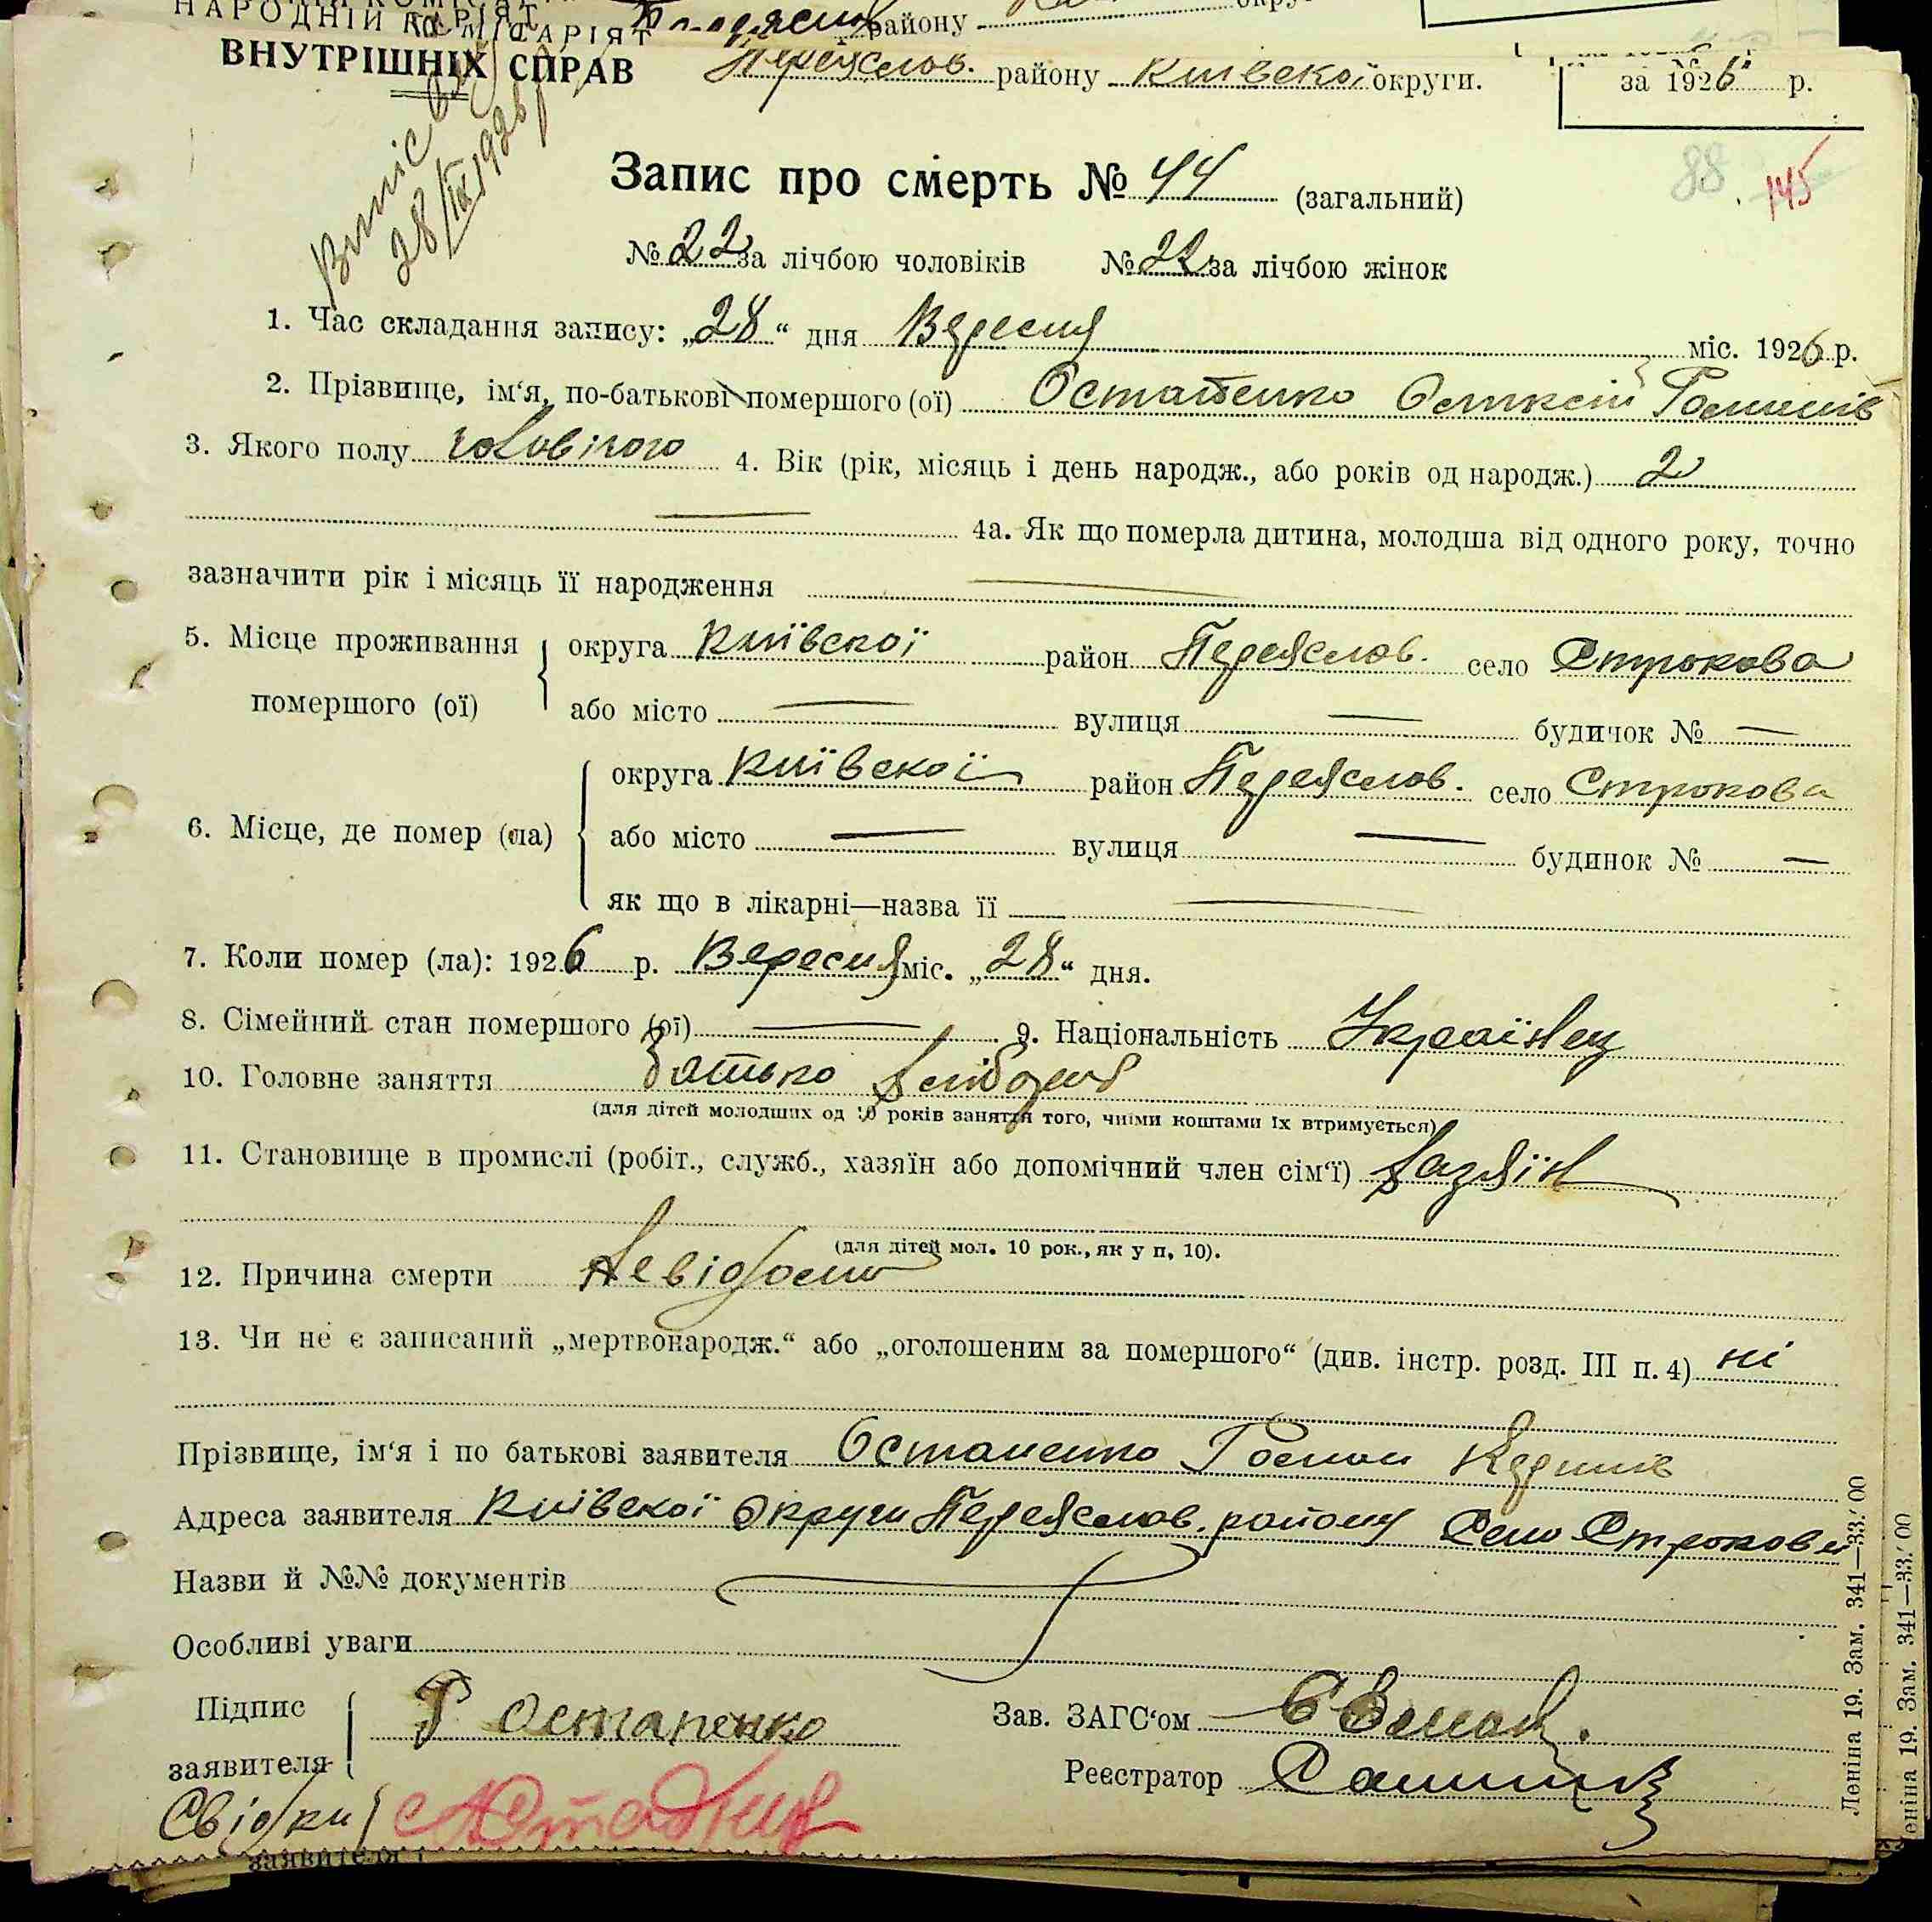 НАРОДНІЙ КОМІСАРІЯТ
району
ВНУТРІШНІХ СПРАВ
Переяслов. району Київскої округи.
за 1926 р.
28/IX 1926 р
Запис про смерть № 44 (загальний)
88 145
№ 22 за лічбою чоловіків № 22 за лічбою жінок
1. Час складання запису: „28“ дня Вересня міс. 1926 р.
2. Прізвище, ім‘я, по-батькові помершого (ої) Остапенко Романів
3. Якого полу чоловічого 4. Вік (рік, місяць і день народж., або років од народж.) 2
4а. Як що померла дитина, молодша від одного року, точно
зазначити рік і місяць її народження
5. Місце проживання помершого (ої) округа Київскої район Переяслов. село Строкова
або місто вулиця будинок №
6. Місце, де помер (ла) округа Київскої район Переяслов. село Строкова
або місто вулиця будинок №
як що в лікарні—назва її
7. Коли помер (ла): 1926 р. Вересня міс. „28“ дня.
8. Сімейний стан помершого (ої) 9. Національність Українец
10. Головне заняття батько хлібороб
(для дітей молодших од 10 років заняття того, чиїми коштами їх втримується)
11. Становище в промислі (робіт., служб., хазяїн або допомічний член сім‘ї) хазяїн
(для дітей мол. 10 рок., як у п. 10).
12. Причина смерти Невідомо
13. Чи не є записаний „мертвонародж.“ або „оголошеним за помершого“ (див. інстр. розд. III п. 4) ні
Прізвище, ім‘я і по батькові заявителя Остапенко Роман
Адреса заявителя Київскої Округи Переяслов. району Село Строкова
Назви й №№ документів
Особливі уваги
Підпис заявителя Р Остапенко
Зав. ЗАГС‘ом
Реєстратор
Свідки
заявителя
Леніна 19. Зам. 341—33.′00
еніна 19. Зам. 341—33.′00